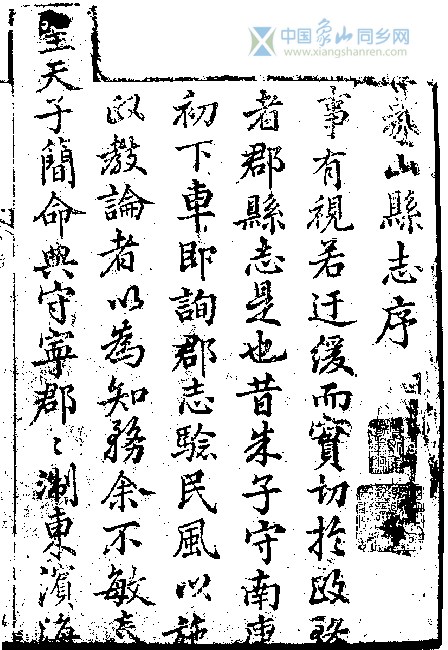 中国象山同乡网
www.xiangshanren.com
象山縣志序
事有視若迂緩而實切於政務
者郡縣志是也昔朱子守南康
初下車即詢郡志驗民風以施
政教論者以為知務余不敏恭
聖天子簡命典守寧郡〻瀕東濱海